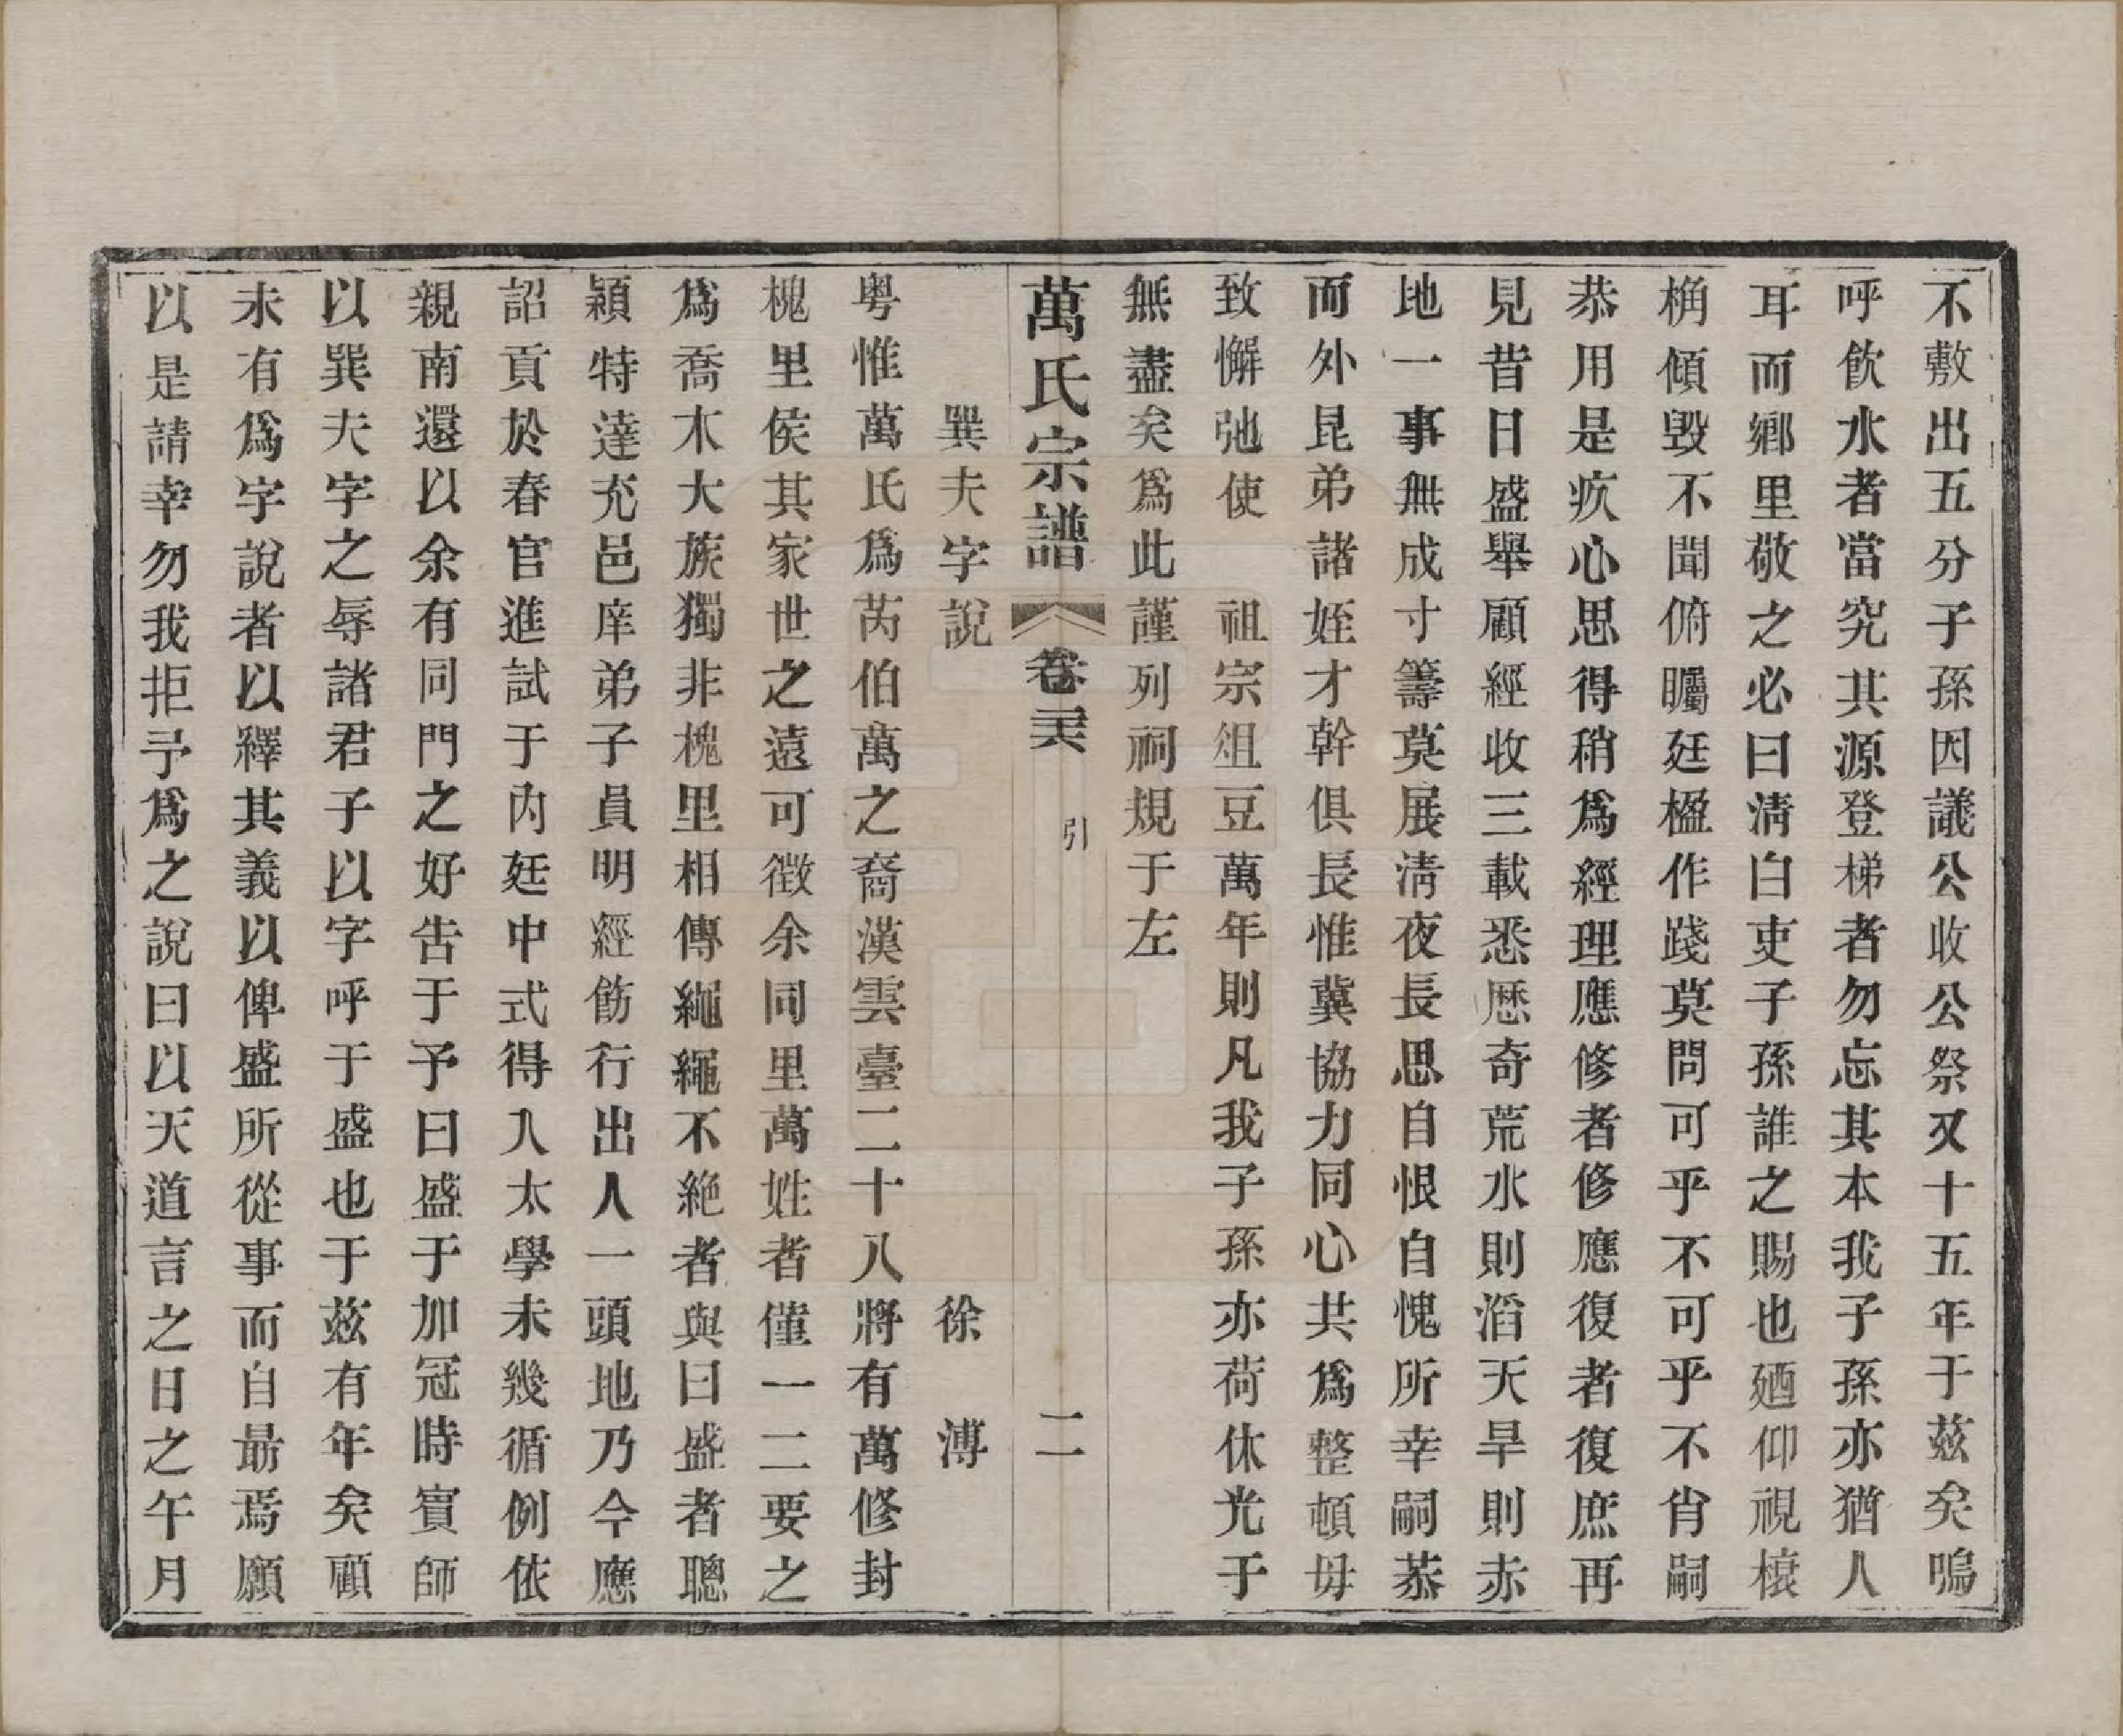 不敷出五分子孫因議公收公祭又十五年于茲矣鳴
呼飲水者當究其源登梯者勿忘其本我子孫亦猶人
耳而鄉里敬之必曰清白吏子孫誰之賜也廼仰視榱
桷傾毀不聞俯矚廷楹作踐莫問可乎不可乎不肖嗣
恭用是疚心思得稍爲經理應修者修應復者復庶再
見昔日盛舉顧經收三載悉歷奇荒水則滔天旱則赤
地一事無成寸籌莫展清夜長思自恨自愧所幸嗣恭
而外昆弟諸姪才幹俱長惟冀協力同心共爲整頓毋
致懈弛使　祖宗俎豆萬年則凡我子孫亦荷休光于
無盡矣爲此謹列祠規于左
萬氏宗譜　卷三　引　二
巽夫字說　徐溥
粤惟萬氏爲芮伯萬之裔漢雲臺二十八將有萬修封
槐里侯其家世之遠可徵余同里萬姓者僅一二要之
爲喬木大族獨非槐里相傳繩繩不絶者與曰盛者聰
穎特達充邑庠弟子員明經飭行出人一頭地乃今應
詔貢於春官進試于內廷中式得入太學未幾循例依
親南還以余有同門之好告于予曰盛于加冠時賓師
以巽夫字之辱諸君子以字呼于盛也于茲有年矣顧
未有爲字說者以繹其義以俾盛所從事而自勗焉願
以是請幸勿我拒予爲之說曰以天道言之日之午月